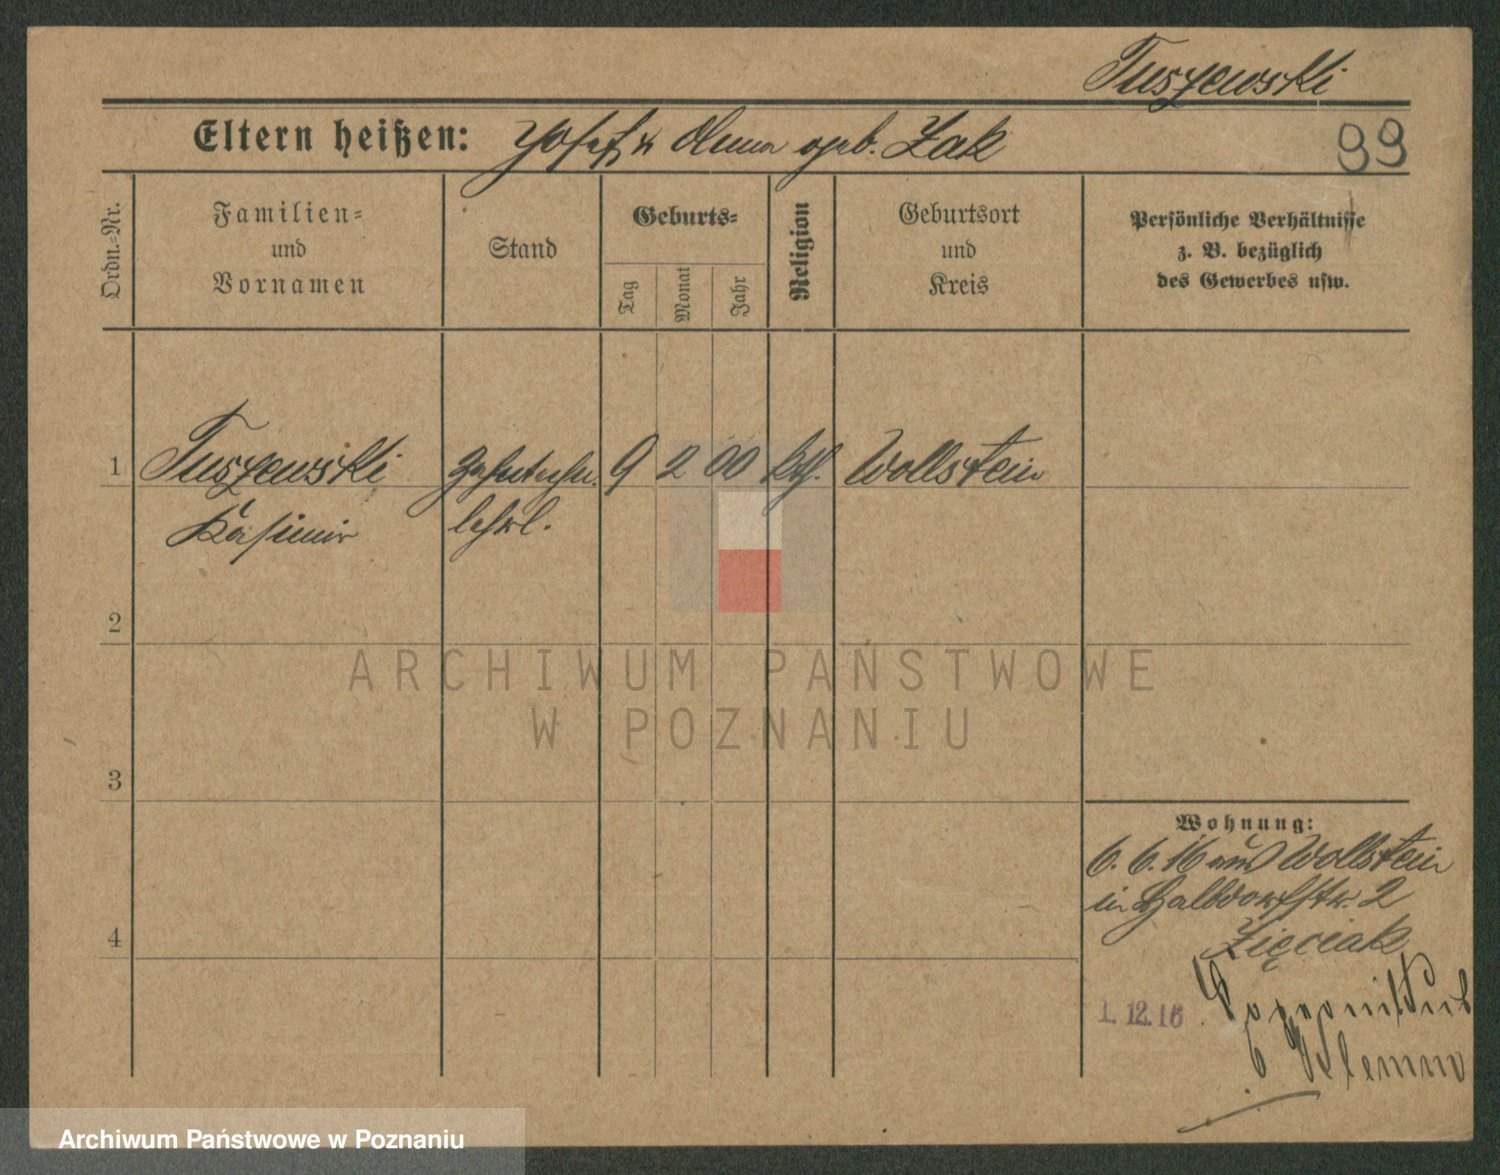 Tuszewski
Eltern heißen: Josef u Anna geb. Żak
99
Ordn.-Nr.
Familien-
und
Vornamen
Stand
Geburts-
Tag
Monat
Jahr
Religion
Geburtsort
und
Kreis
Persönliche Verhältnisse
z. B. bezüglich
des Gewerbes usw.
1 Tuszewski Zahntechn. 9 2 00 kth. Wollstein
Kasimir lehrl.
2
ARCHIWUM PAŃSTWOWE
W POZNANIU
3
Wohnung:
6. 6. 16 aus Wollstein
in Halbdorfstr. 2
4
Zięciak
1.12.16
6 Klemm
Archiwum Państwowe w Poznaniu